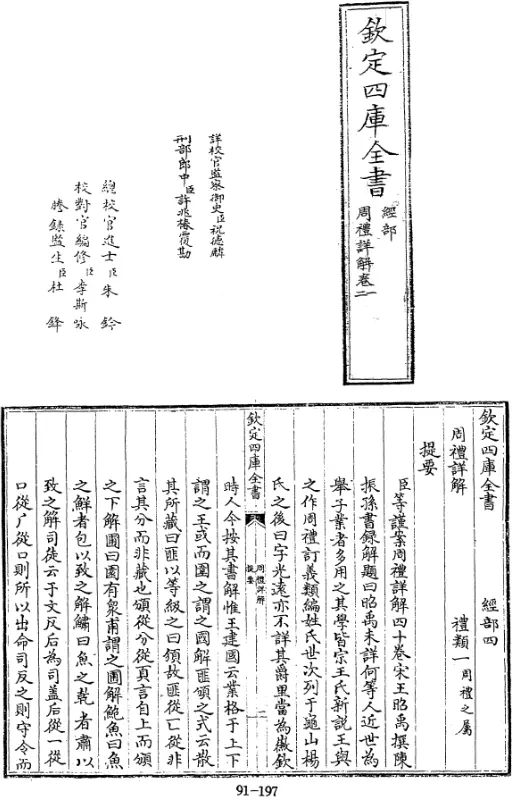 欽定四庫全書
經部
周禮詳解卷一二
詳校官監察御史臣祝德麟
刑部郎中臣許兆椿覆勘
總校官進士臣朱鈐
校對官編修臣李斯咏
謄錄監生臣杜鋒
欽定四庫全書 經部四
周禮詳解 禮類一周禮之屬
提要
臣等謹案周禮詳解四十卷宋王昭禹撰陳
振孫書録解題曰昭禹未詳何等人近世為
舉子業者多用之其學皆宗王氏新說王與
之作周禮訂義類編姓氏世次列于龜山楊
氏之後曰字光遠亦不詳其爵里當為徽欽
欽定四庫全書
周禮詳解
提要
一
時人今按其書解惟王建國云業格于上下
謂之王或而圍之謂之國解匪頒之式云散
其所藏曰匪以等級之曰頒故匪從匚從非
言其分而非藏也頒從分從頁言自上而頒
之下解圃曰園有衆甫謂之圃解鮑魚曰魚
之鮮者包以致之解鱐曰魚之乾者肅以
致之解司徒云于文反后為司盖后從一從
口從厂從口則所以出命司反之則守令而
91-197